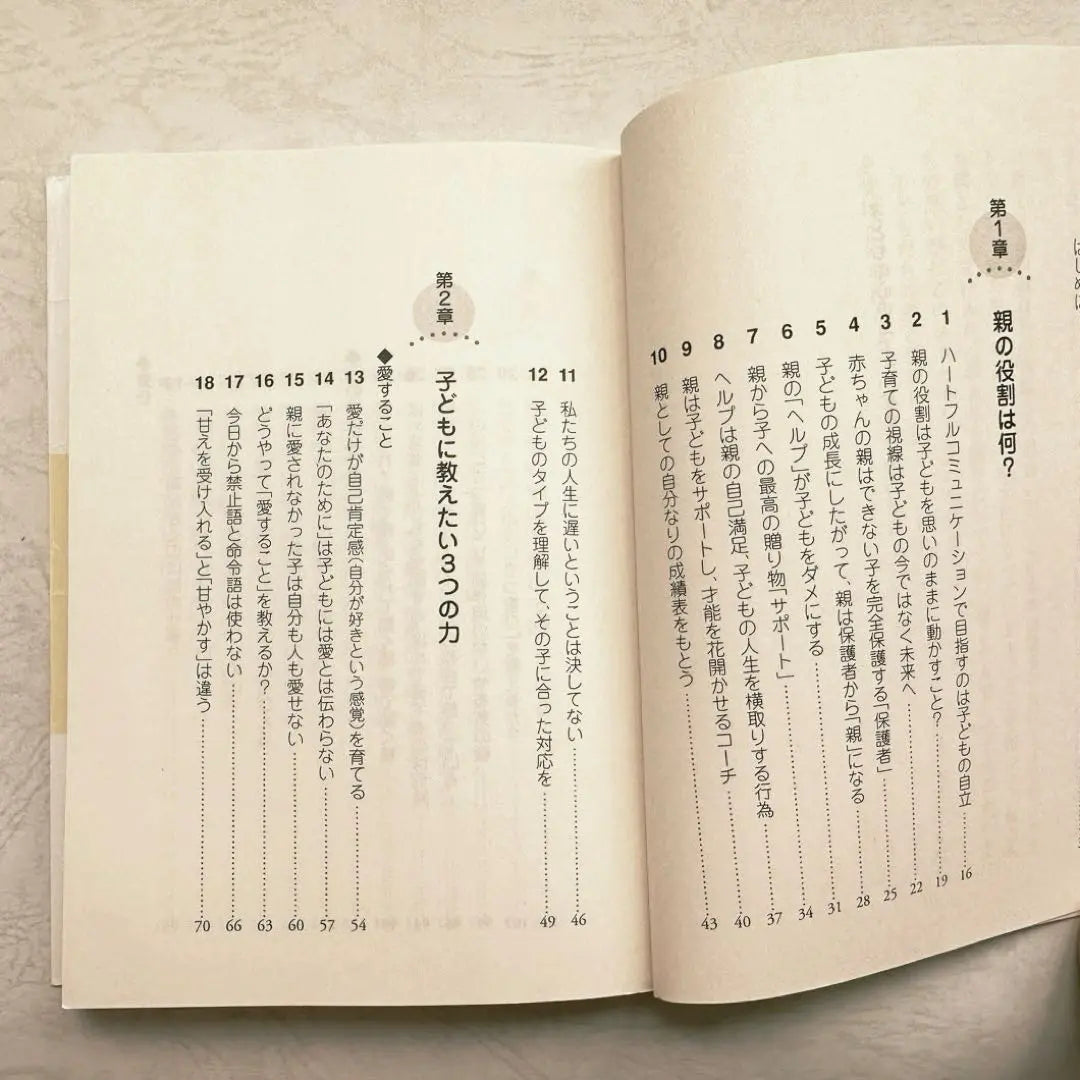 はじめに
第1章 親の役割は何?
1 ハートフルコミュニケーションで目指すのは子どもの自立 16
2 親の役割は子どもを思いのままに動かすこと? 19
3 子育ての視線は子どもの今ではなく未来へ 22
4 赤ちゃんの親はできない子を完全保護する「保護者」 25
5 子どもの成長にしたがって、親は保護者から「親」になる 28
6 親の「ヘルプ」が子どもをダメにする 31
7 親から子への最高の贈り物「サポート」 34
8 ヘルプは親の自己満足、子どもの人生を横取りする行為 37
9 親は子どもをサポートし、才能を花開かせるコーチ 40
10 親としての自分なりの成績表をもとう 43
11 私たちの人生に遅いということは決してない 46
12 子どものタイプを理解して、その子に合った対応を 49
第2章 子どもに教えたい3つの力
◆愛すること
13 愛だけが自己肯定感(自分が好きという感覚)を育てる 54
14 「あなたのために」は子どもには愛とは伝わらない 57
15 親に愛されなかった子は自分も人も愛せない 60
16 どうやって「愛すること」を教えるか? 63
17 今日から禁止語と命令語は使わない 66
18 「甘えを受け入れる」と「甘やかす」は違う 70